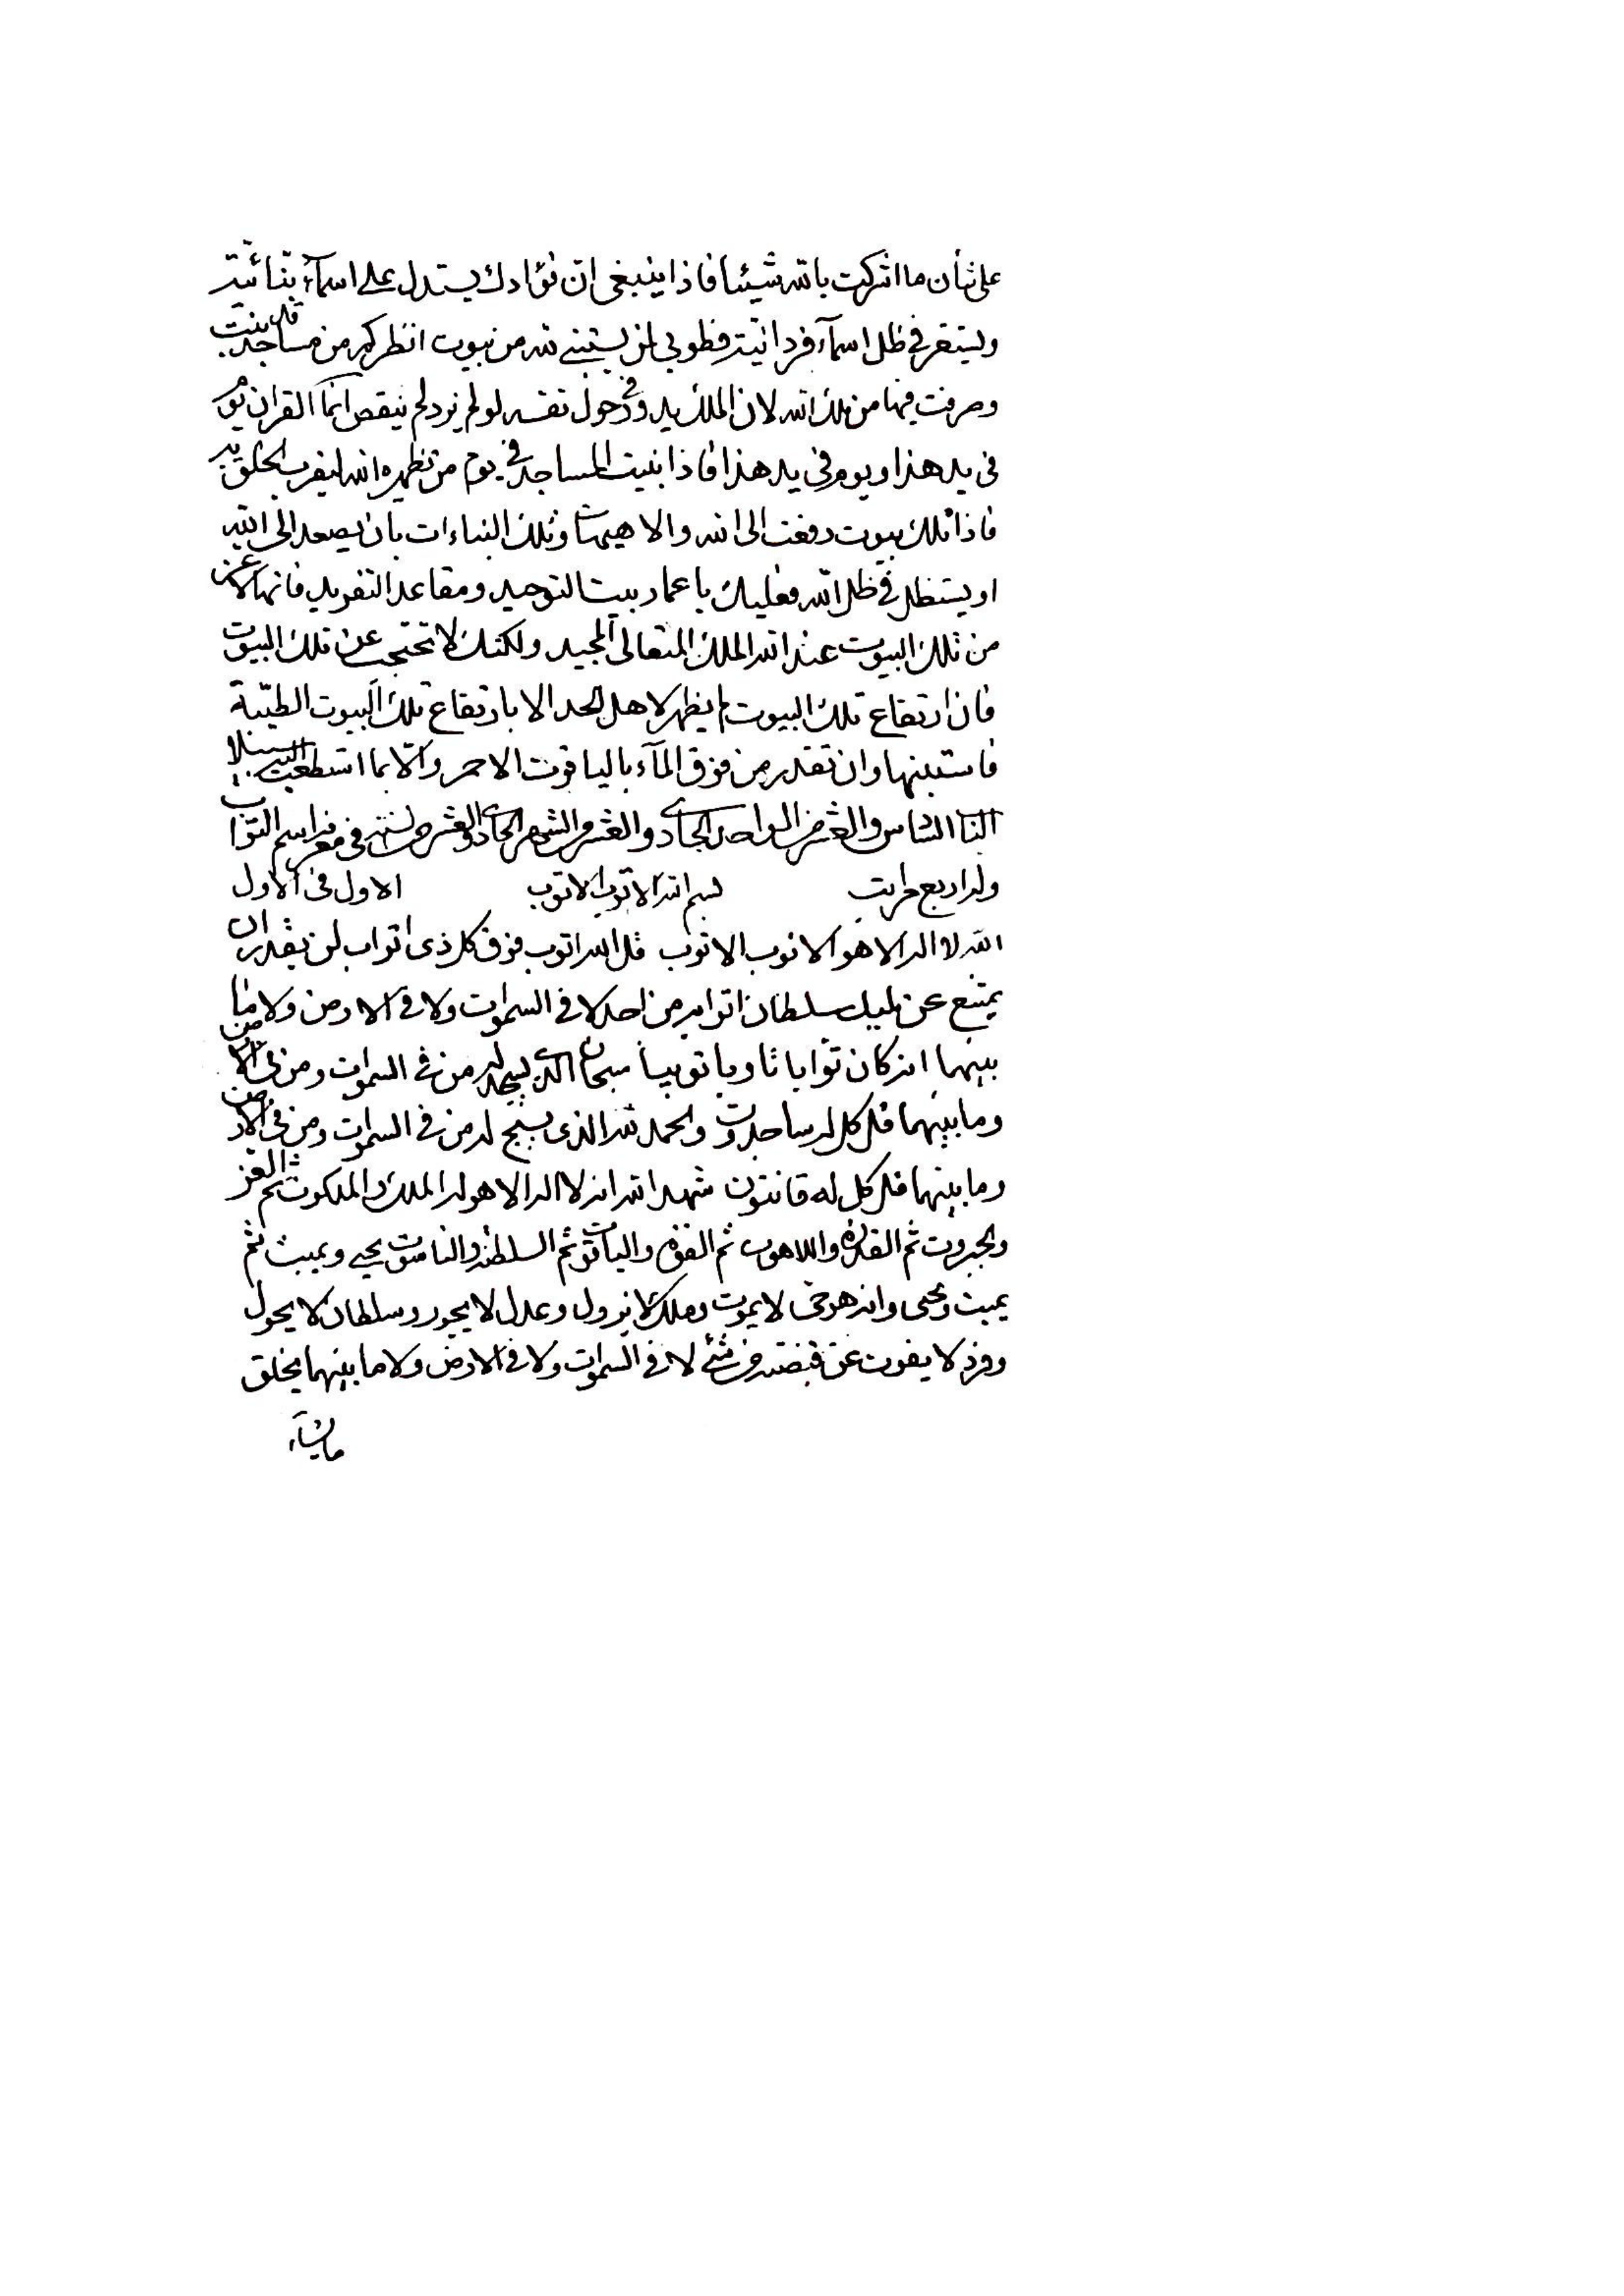 على شأن ما اشركت بالله شيئا فاذا ينبغى ان فؤادك يستدل على اسمآء بنائيته
وليستقر فى ظل اسمآء فردانيته فطوبى لمن يستبنى لله من بيوت انظر كم من مساجد قد بنيت
وصرفت فيها من ملك الله لان الملك بيده وفى حول نفسه لو لم يزد لم ينقص انما القران يوم
فى يد هذا ويوم فى يد هذا فاذا بنيت المساجد فى يوم من يظهره الله ليقرب الخلق به
فاذا تلك بيوت رفعت الى الله والا هيهات وتلك البناءات بان يصعد الى الله
او يستظل فى ظل الله فعليك باعماد بيت التوحيد ومقاعد التفريد فانها لاعز
من تلك البيوت عند الله الملك المتعالى المجيد ولكنك لا تحتجب عن تلك البيوت
فان ارتفاع تلك البيوت لم يظهر لاهل الحد الا بارتفاع تلك البيوت الطيبة
فاستبنها وان تقدر من فوق المآء بالياقوت الاحمر والا بما استطعت اليه سبيلا
الباب السادس والعشر من الواحد الحادى والعشر من الشهر الحادى والعشر من السنة فى معرفة اسم التواب
وله اربع مراتب الاول فى الاول بسم الله الاتوب الاتوب
الله لا اله الا هو الاتوب الاتوب قل الله اتوب فوق كل ذى اتواب لن يقدر ان
يمتنع عن مليك سلطان اتوابه من احد لا فى السموات ولا فى الارض ولا ما
بينهما انه كان توابا تاوبا تويبا سبحان الذى يسجد له من فى السموات ومن فى الارض
وما بينهما قل كل له ساجدون والحمد لله الذى يسبح له من فى السموات ومن فى الارض
وما بينهما قل كل له قانتون شهد الله انه لا اله الا هو له الملك والملكوت ثم العز
والجبروت ثم القدرة واللاهوت ثم القوة والياقوت ثم السلطنة والناسوت يحيى ويميت ثم
يميت ويحيى وانه هو حى لا يموت وملك لا يزول وعدل لا يجور وسلطان لا يحول
وفرد لا يفوت عن قبضته من شئ لا فى السموات ولا فى الارض ولا ما بينهما يخلق
ما يشآء